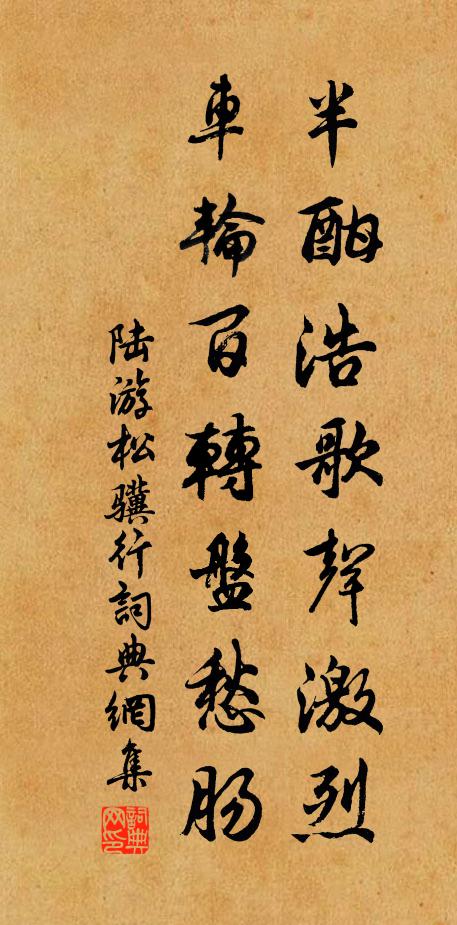 半酣浩歌聲激烈
車輪百轉盤愁腸
陆游松驥行詞典網集
詞典網印